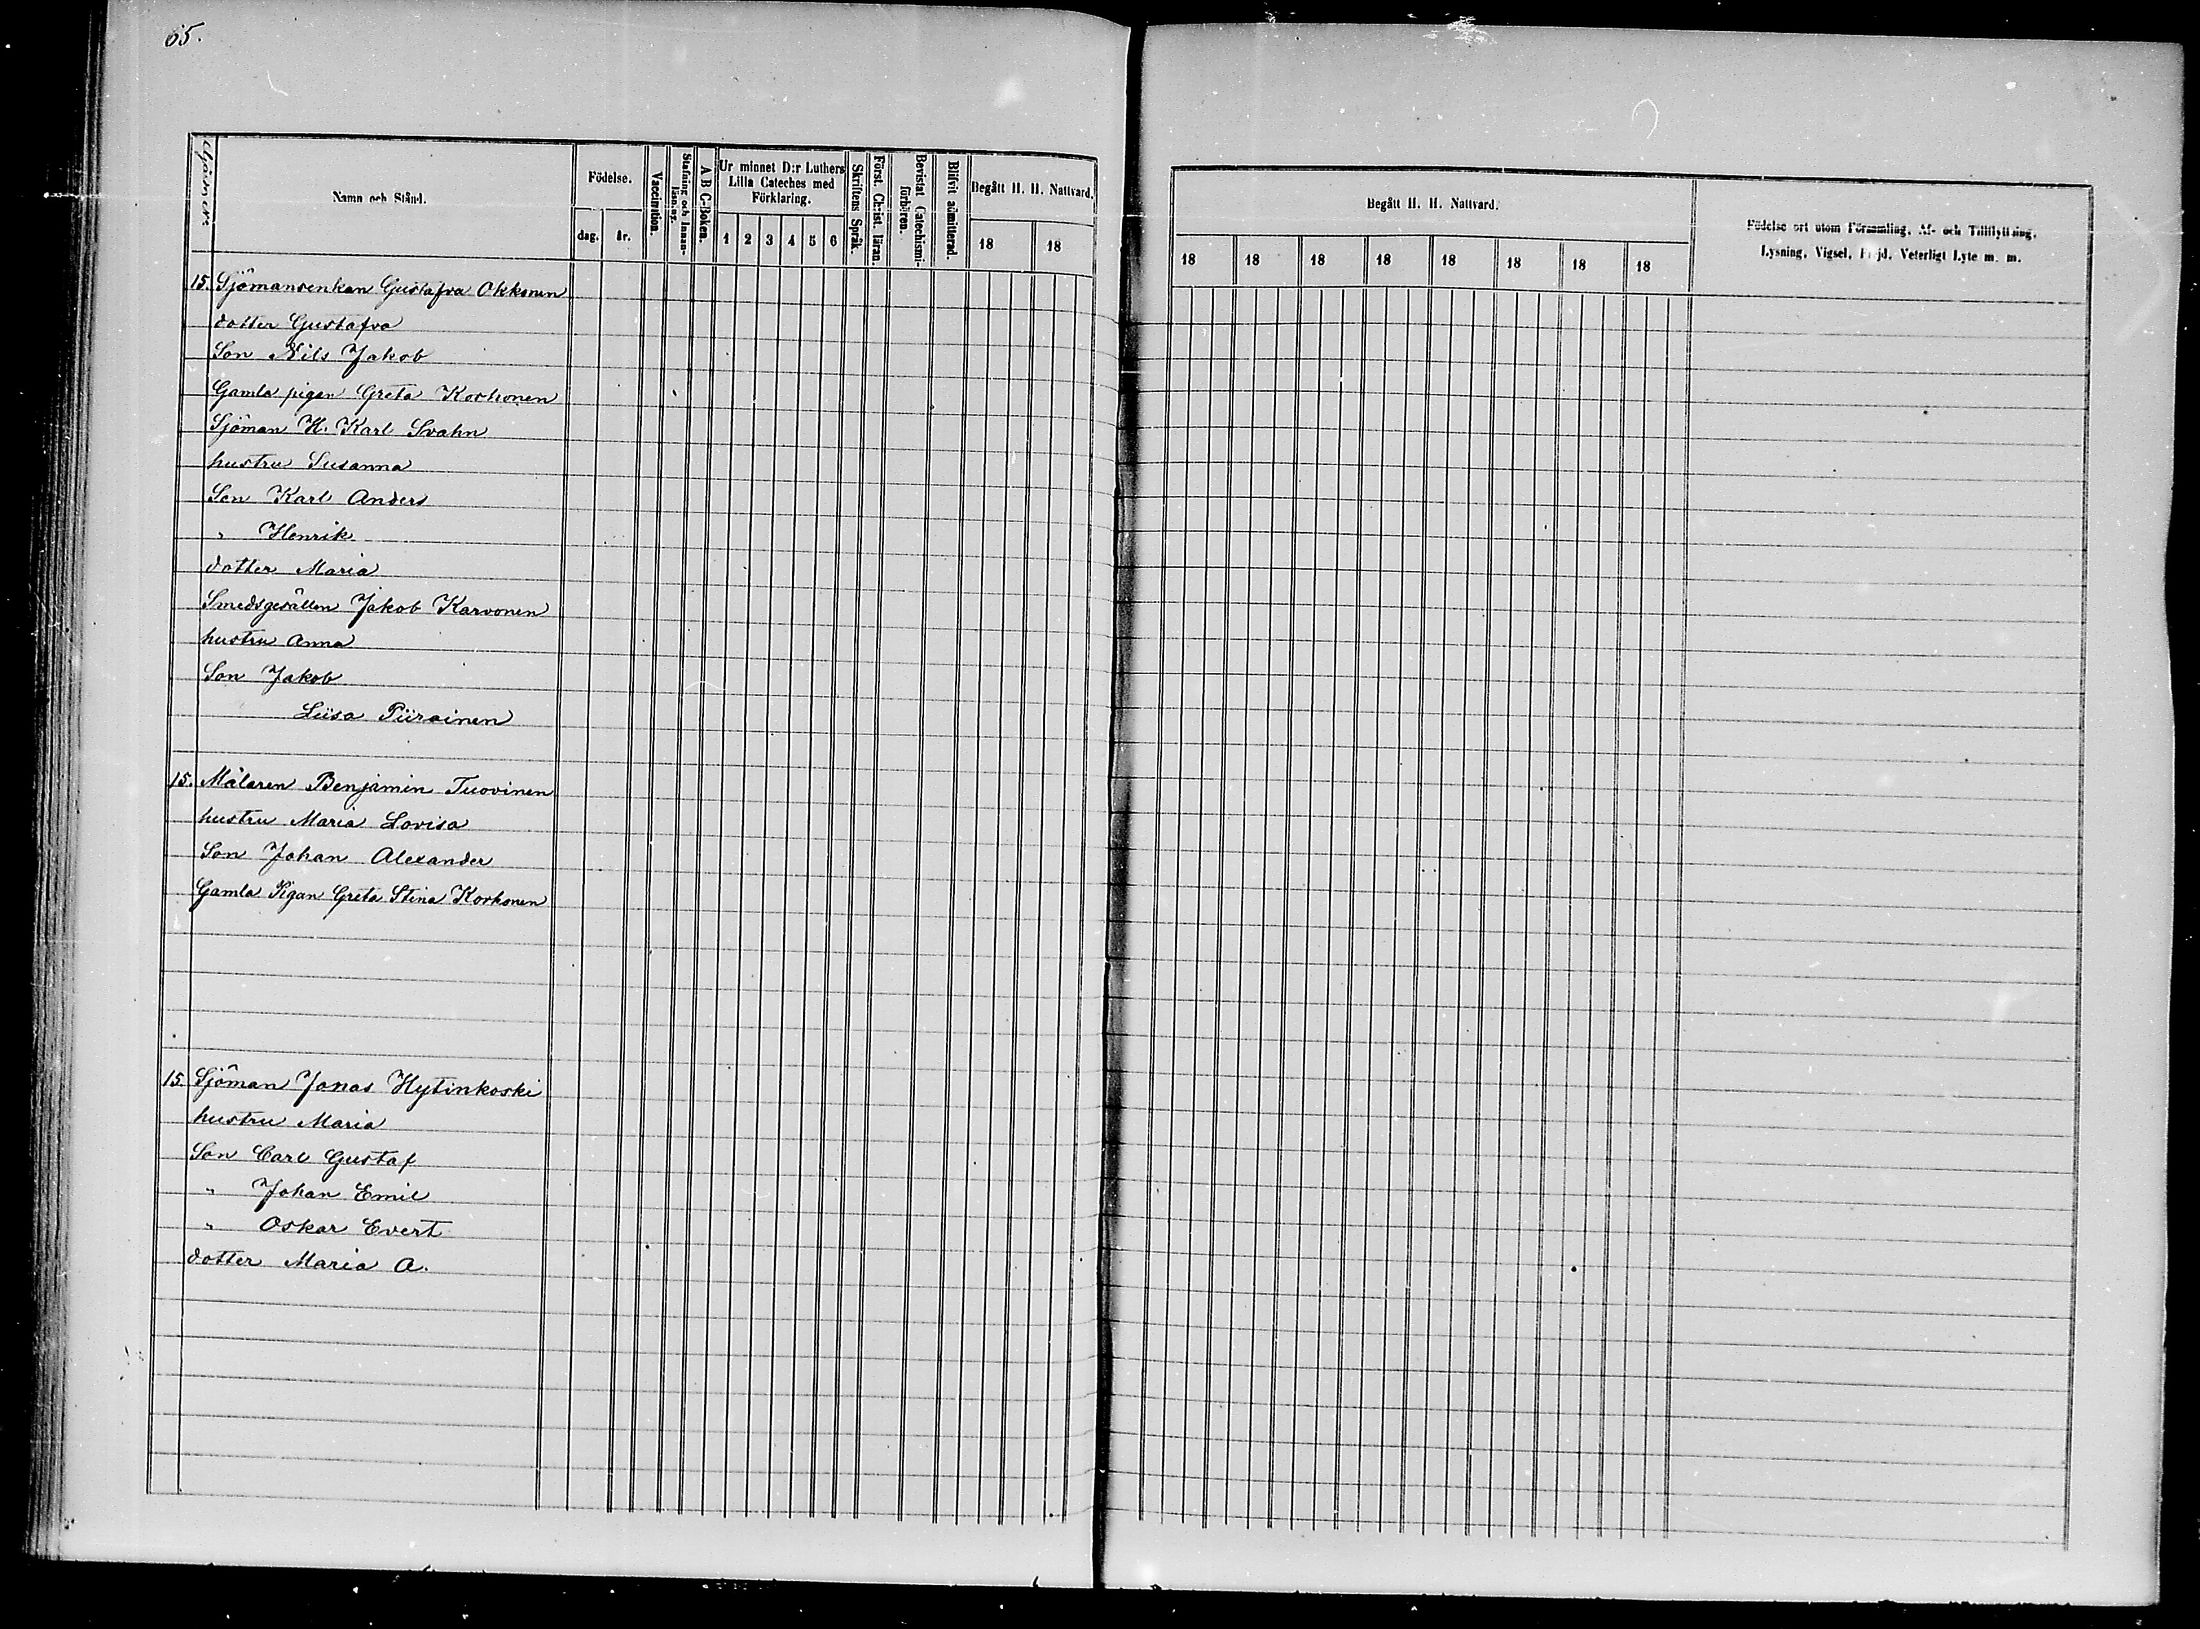 65.
Gårds nr.
Namn och Stånd.
Födelse.
dag. år.
Vaccination.
Stafning och Innan-
läsning.
A B C-Boken.
Ur minnet D:r Luthers
Lilla Cateches med
Förklaring.
1 2 3 4 5 6
Skriftens Språk.
Först. Christ. läran.
Bevistat Catechismi-
förhören.
Blifvit admitterad.
Begått H. H. Nattvard.
18 18
Begått H. H. Nattvard.
18 18 18 18 18 18 18 18
Födelse ort utom Församling, Af- och Tillflyttning,
Lysning, Vigsel, Frejd, Veterligt Lyte m. m.
15. Sjömansenkan Gustafva Okkonen
dotter Gustafva
Son Nils Jakob
Gamla pigan Greta Korhonen
Sjöman H. Karl Svahn
hustru Susanna
Son Karl Anders
" Henrik
dotter Maria
Smedsgesällen Jakob Karvonen
hustru Anna
Son Jakob
Liisa Piirainen
15. Målaren Benjamin Tuovinen
hustru Maria Lovisa
Son Johan Alexander
Gamla Pigan Greta Stina Korhonen
15. Sjöman Jonas Hytinkoski
hustru Maria
Son Carl Gustaf
" Johan Emil
" Oskar Evert
dotter Maria A.